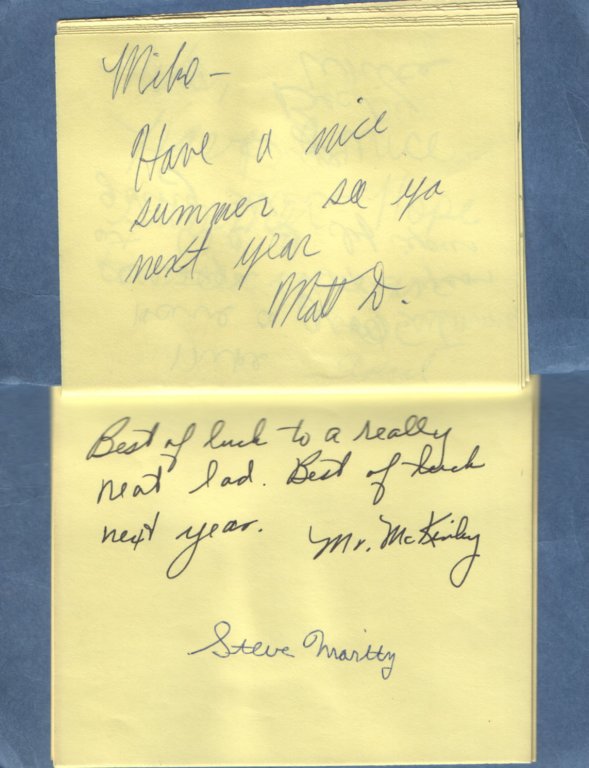 Mike –
Have a nice
summer see ya
next year
Matt D.
Best of luck to a really
neat lad. Best of luck
next year. Mr. McKinley
Steve